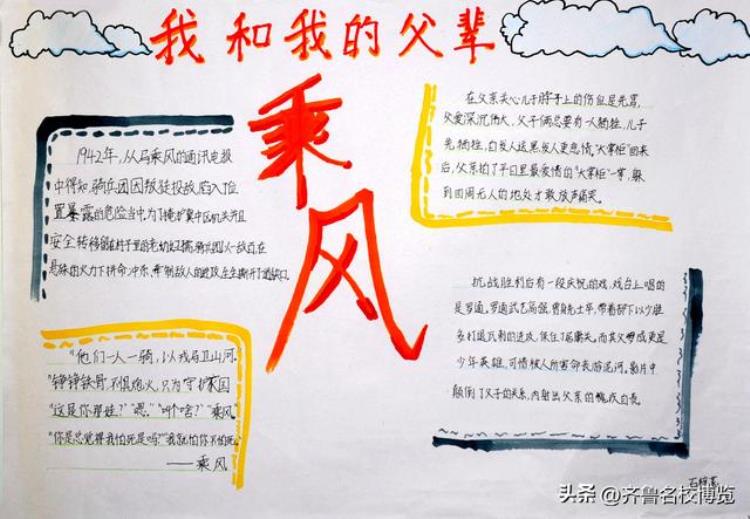 我和我的父辈
乘风
1942年,从马乘风的通讯电报
中得知,骑兵团因叛徒投敌,陷入了位
置暴露的危险当中,为了掩护冀中区机关并且
安全转移留在村子里的老幼妇孺,骑兵团以一敌百,在
悬殊的火力下拼命冲杀,牵制敌人的进攻,生生撕开了道缺口
“他们一人一骑,以戎马卫山河,
铮铮铁骨,不惧炮火,只为守护家国
“这是你那娃?”“嗯。”“叫个啥?”“乘风。”
“你是总觉得我怕死是吗?”“我就怕你不怕死。”
——乘风
在父亲关心儿子脖子上的伤但是先骂,
父爱深沉伟大,父子俩总要有一人牺牲,儿子
先牺牲,白发人送黑发人更悲情。“大掌柜”回来
后,父亲拍了平日里最爱惜的“大掌柜”一掌,躲
到四周无人的地处才敢放声痛哭。
抗战胜利后有一段庆祝的戏,戏台上唱的
是罗通。罗通武艺高强,曾身先士卒,带着部下以少胜
多打退瓦剌的进攻,保住了居庸关。而其父罗成更是
少年英雄,可惜被人所害命丧淤泥河。影片中
颠倒了父子的关系,内射出父亲的愧疚自责。
头条@齐鲁名校博览